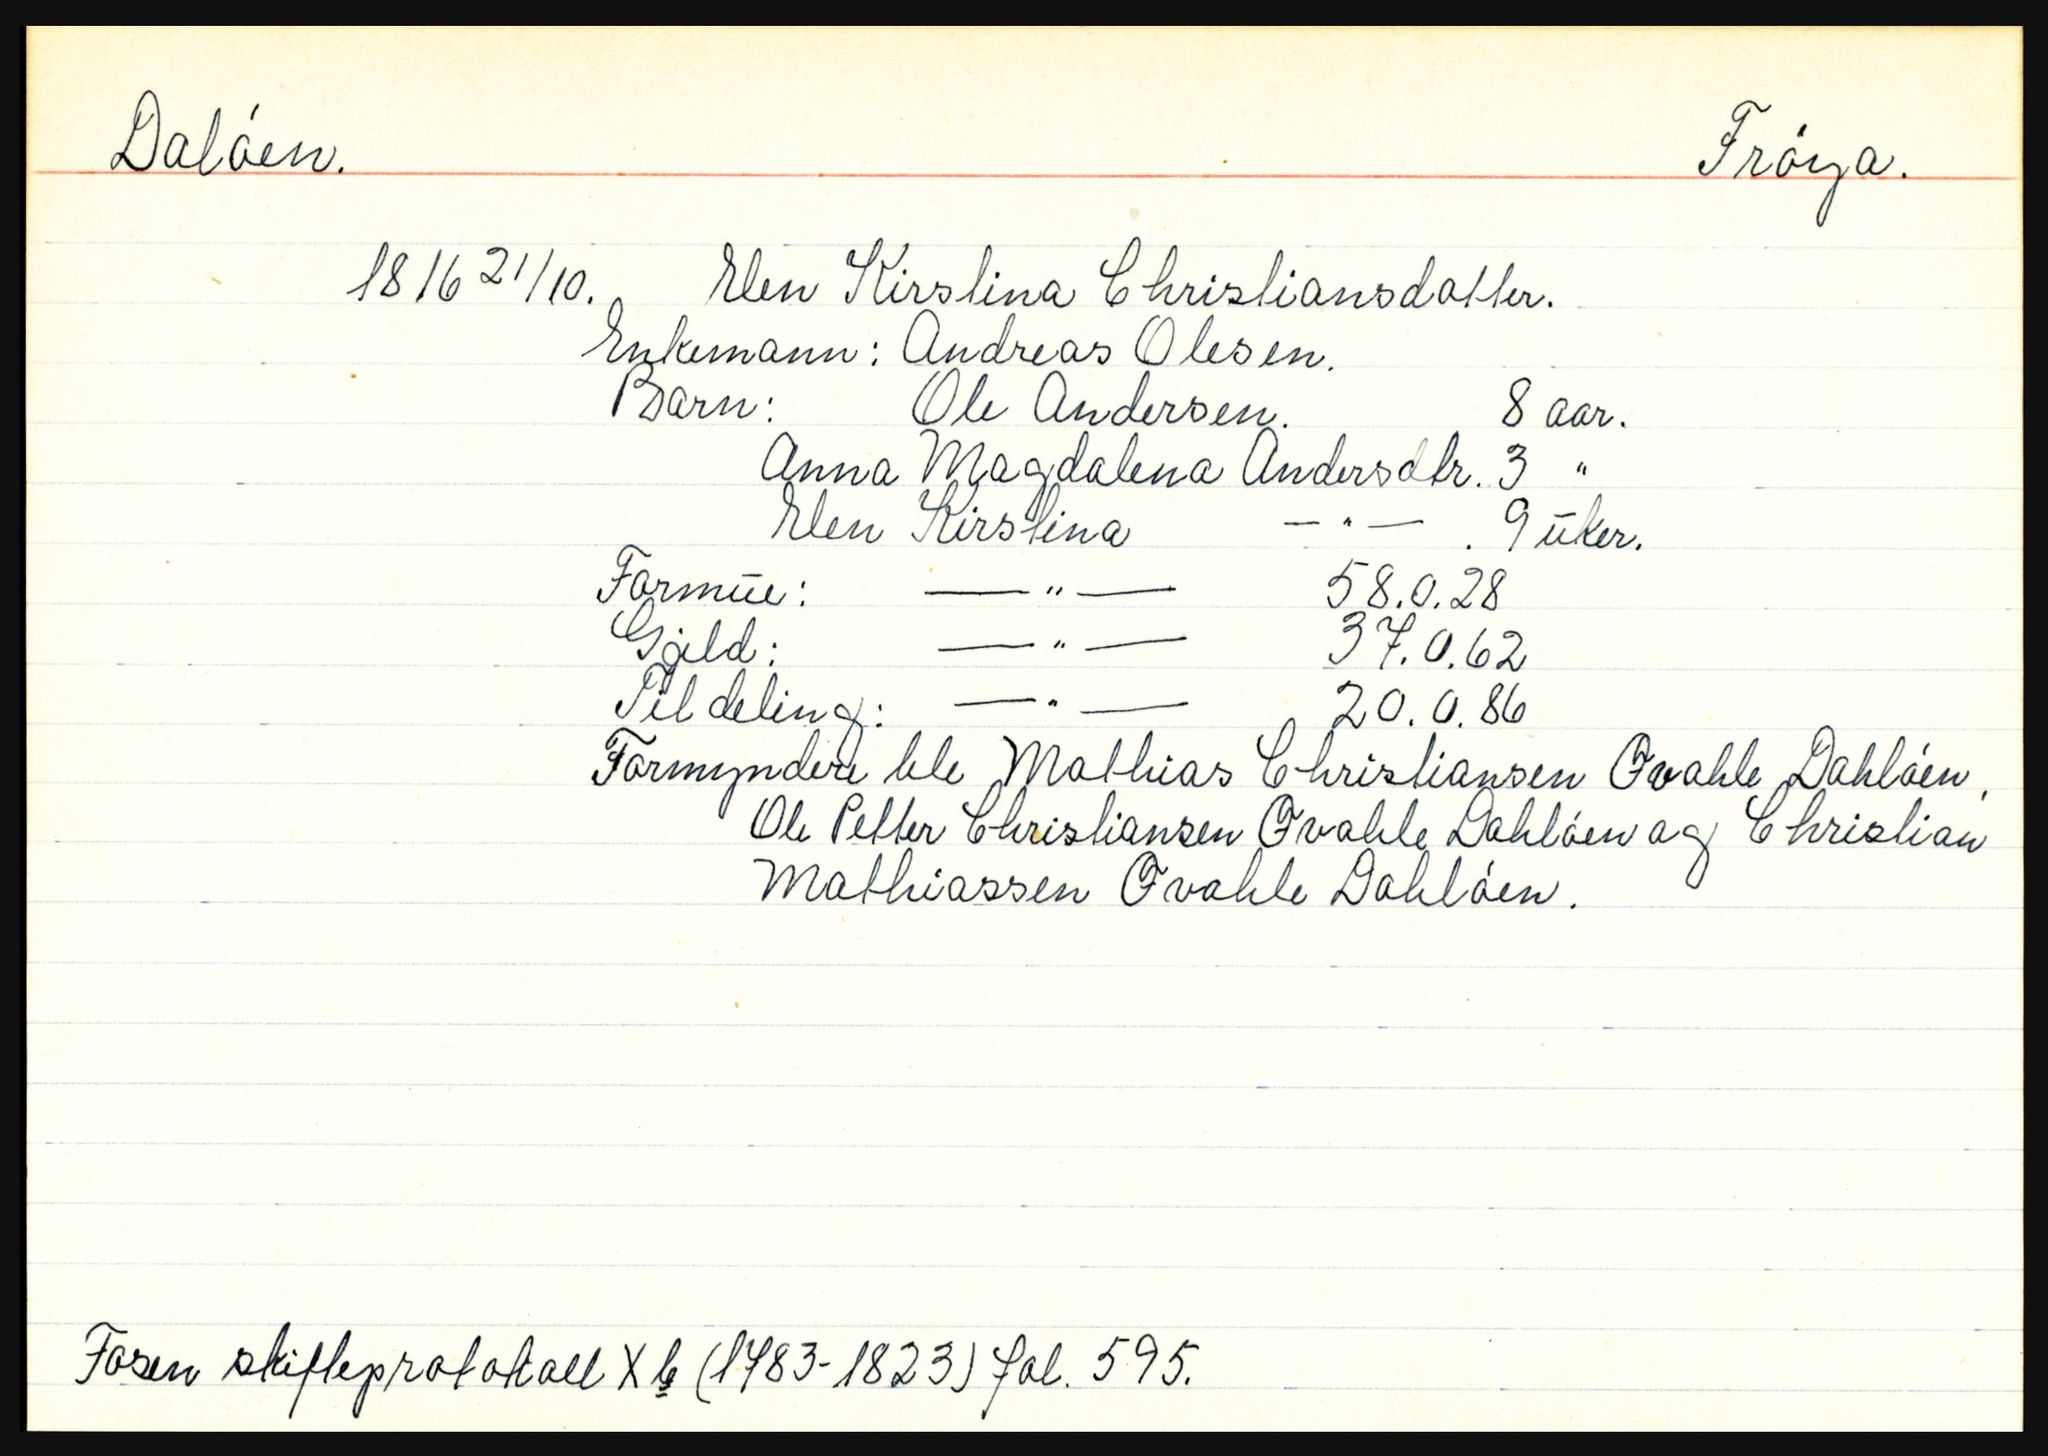 Dalóen. Fróya.
1816 21/10. Elen Kirstina Christiansdatter.
Enkemann: Andreas Olesen.
Barn: Ole Andersen. 8 aar.
Anna Magdalena Andersdtr. 3 "
Elen Kirstina —"— . 9 uker.
Formue: —"— 58.0.28
Gjeld: —"— 37.0.62
Til deling: —"— 20.0.86
Formyndere ble Mathias Christiansen Qvahle Dahlóen,
Ole Petter Christiansen Qvahle Dahlóen og Christian
Mathiassen Qvahle Dahlóen.
Fosen skifteprotokoll X b (1783-1823) fol. 595.